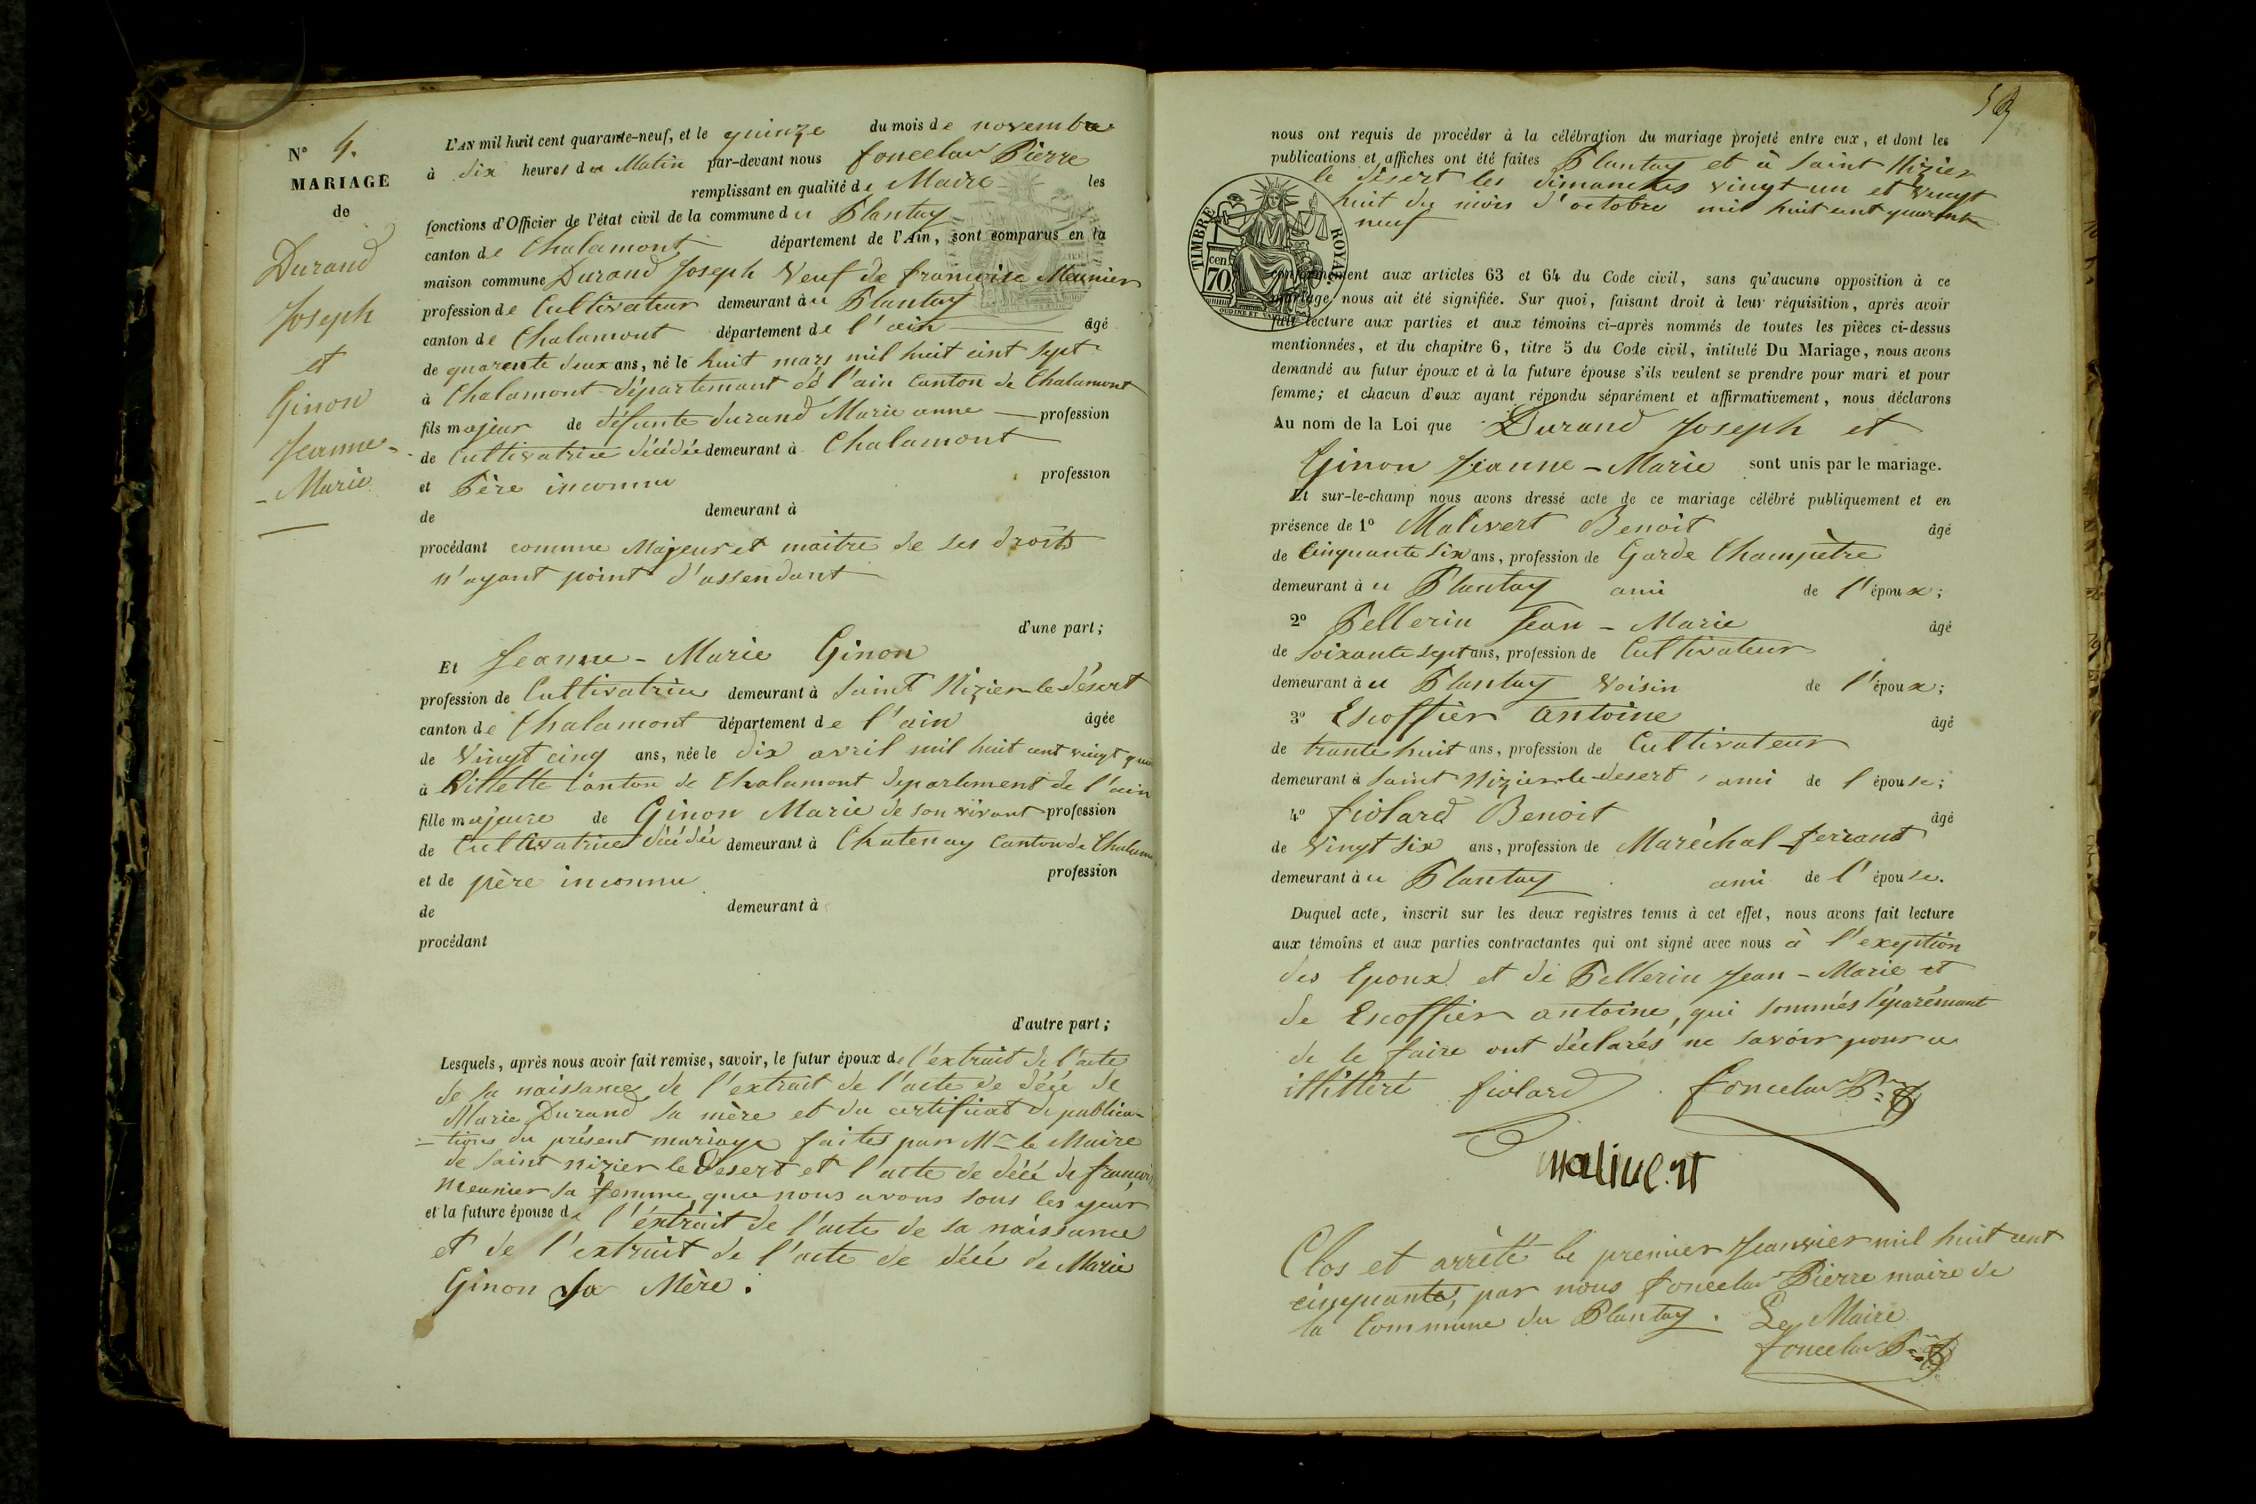 N° 4.
MARIAGE
de
Durand
Joseph
et
Ginon
Jeanne-
- Marie
L'AN mil huit cent quarante-neuf, et le quinze du mois de novembre
à dix heures du Matin par-devant nous Pierre
remplissant en qualité de Maire les
fonctions d'Officier de l'état civil de la commune du Plantay
canton de Chalamont département de l'Ain, sont comparus en la
maison commune Durand Joseph Veuf de francoise Meunier
profession de Cultivateur demeurant à u Plantay
canton de Chalamont département de l'ain âgé
de quarente deux ans, né le huit mars mil huit cent sept
à Chalamont département de l'ain canton de Chalamont
fils majeur de défunte durand Marie anne profession
de Cultivatrice décédée demeurant à Chalamont
et Père inconnu profession
de demeurant à
procédant comme Majeur et maitre de ses droits
n'ayant point d'assendant
d'une part;
Et Jeanne - Marie Ginon
profession de Cultivatrice demeurant à Saint Nizier-le Désert
canton de Chalamont département de l'ain âgée
de Vingt cinq ans, née le dix avril mil huit cent vingt
à Villette Canton de Chalamont departement de l'ain
fille majeure de Ginon Marie de son vivant profession
de Cultivatrice décédée demeurant à Chatenay Canton de
et de père inconnu profession
de demeurant à
procédant
d'autre part;
Lesquels, après nous avoir fait remise, savoir, le futur époux de l'extrait de l'acte
de sa naissance de l'extrait de l'acte de décé de
Marie Durand sa mère et du certificat de publica-
=tions du présent mariage faites par Mr le Maire
de Saint nizier le Desert et l'acte de décé de
Meunier sa femme, que nous avons sous les yeux
et la future épouse de l'extrait de l'acte de sa naissance
et de l'extrait de l'acte de décé de Marie
Ginon sa Mère.
nous ont requis de procéder à la célébration du mariage projeté entre eux, et dont les
publications et affiches ont été faites Plantay et à Saint Nizier
le désert les dimanches vingt un et vingt
huit du mois d'octobre mil huit cent quarante
neuf
TIMBRE ROYAL
70 cen.
conformément aux articles 63 et 64 du Code civil, sans qu'aucune opposition à ce
mariage nous ait été signifiée. Sur quoi, faisant droit à leur réquisition, après avoir
fait lecture aux parties et aux témoins ci-après nommés de toutes les pièces ci-dessus
mentionnées, et du chapitre 6, titre 5 du Code civil, intitulé Du Mariage, nous avons
demandé au futur époux et à la future épouse s'ils veulent se prendre pour mari et pour
femme; et chacun d'eux ayant répondu séparément et affirmativement, nous déclarons
Au nom de la Loi que Durand Joseph et
Ginon Jeanne - Marie sont unis par le mariage.
Et sur-le-champ nous avons dressé acte de ce mariage célébré publiquement et en
présence de 1° Malivert Benoit âgé
de Cinquante six ans, profession de Garde Champètre
demeurant à u Plantay ami de l'époux;
2° Pellerin Jean - Marie âgé
de Soixante sept ans, profession de Cultivateur
demeurant à u Plantay Voisin de l'époux;
3° Escoffier antoine âgé
de trante huit ans, profession de Cultivateur
demeurant à Saint Nizier-le-desert ami de l'épouse;
4° fiolard Benoit âgé
de Vingt Six ans, profession de Maréchal ferrant
demeurant à u Plantay ami de l'épouse.
Duquel acte, inscrit sur les deux registres tenus à cet effet, nous avons fait lecture
aux témoins et aux parties contractantes qui ont signé avec nous à l'exeption
des Epoux et de Pellerin Jean - Marie et
de Escoffier antoine, qui sommés séparémant
de le faire ont déclarés ne savoir pour ce
illittéré fiolard
malivert
Clos et arrêté le premier Jeanvier mil huit cent
cinquante, par nous Pierre maire de
la Commune du Plantay. Le Maire